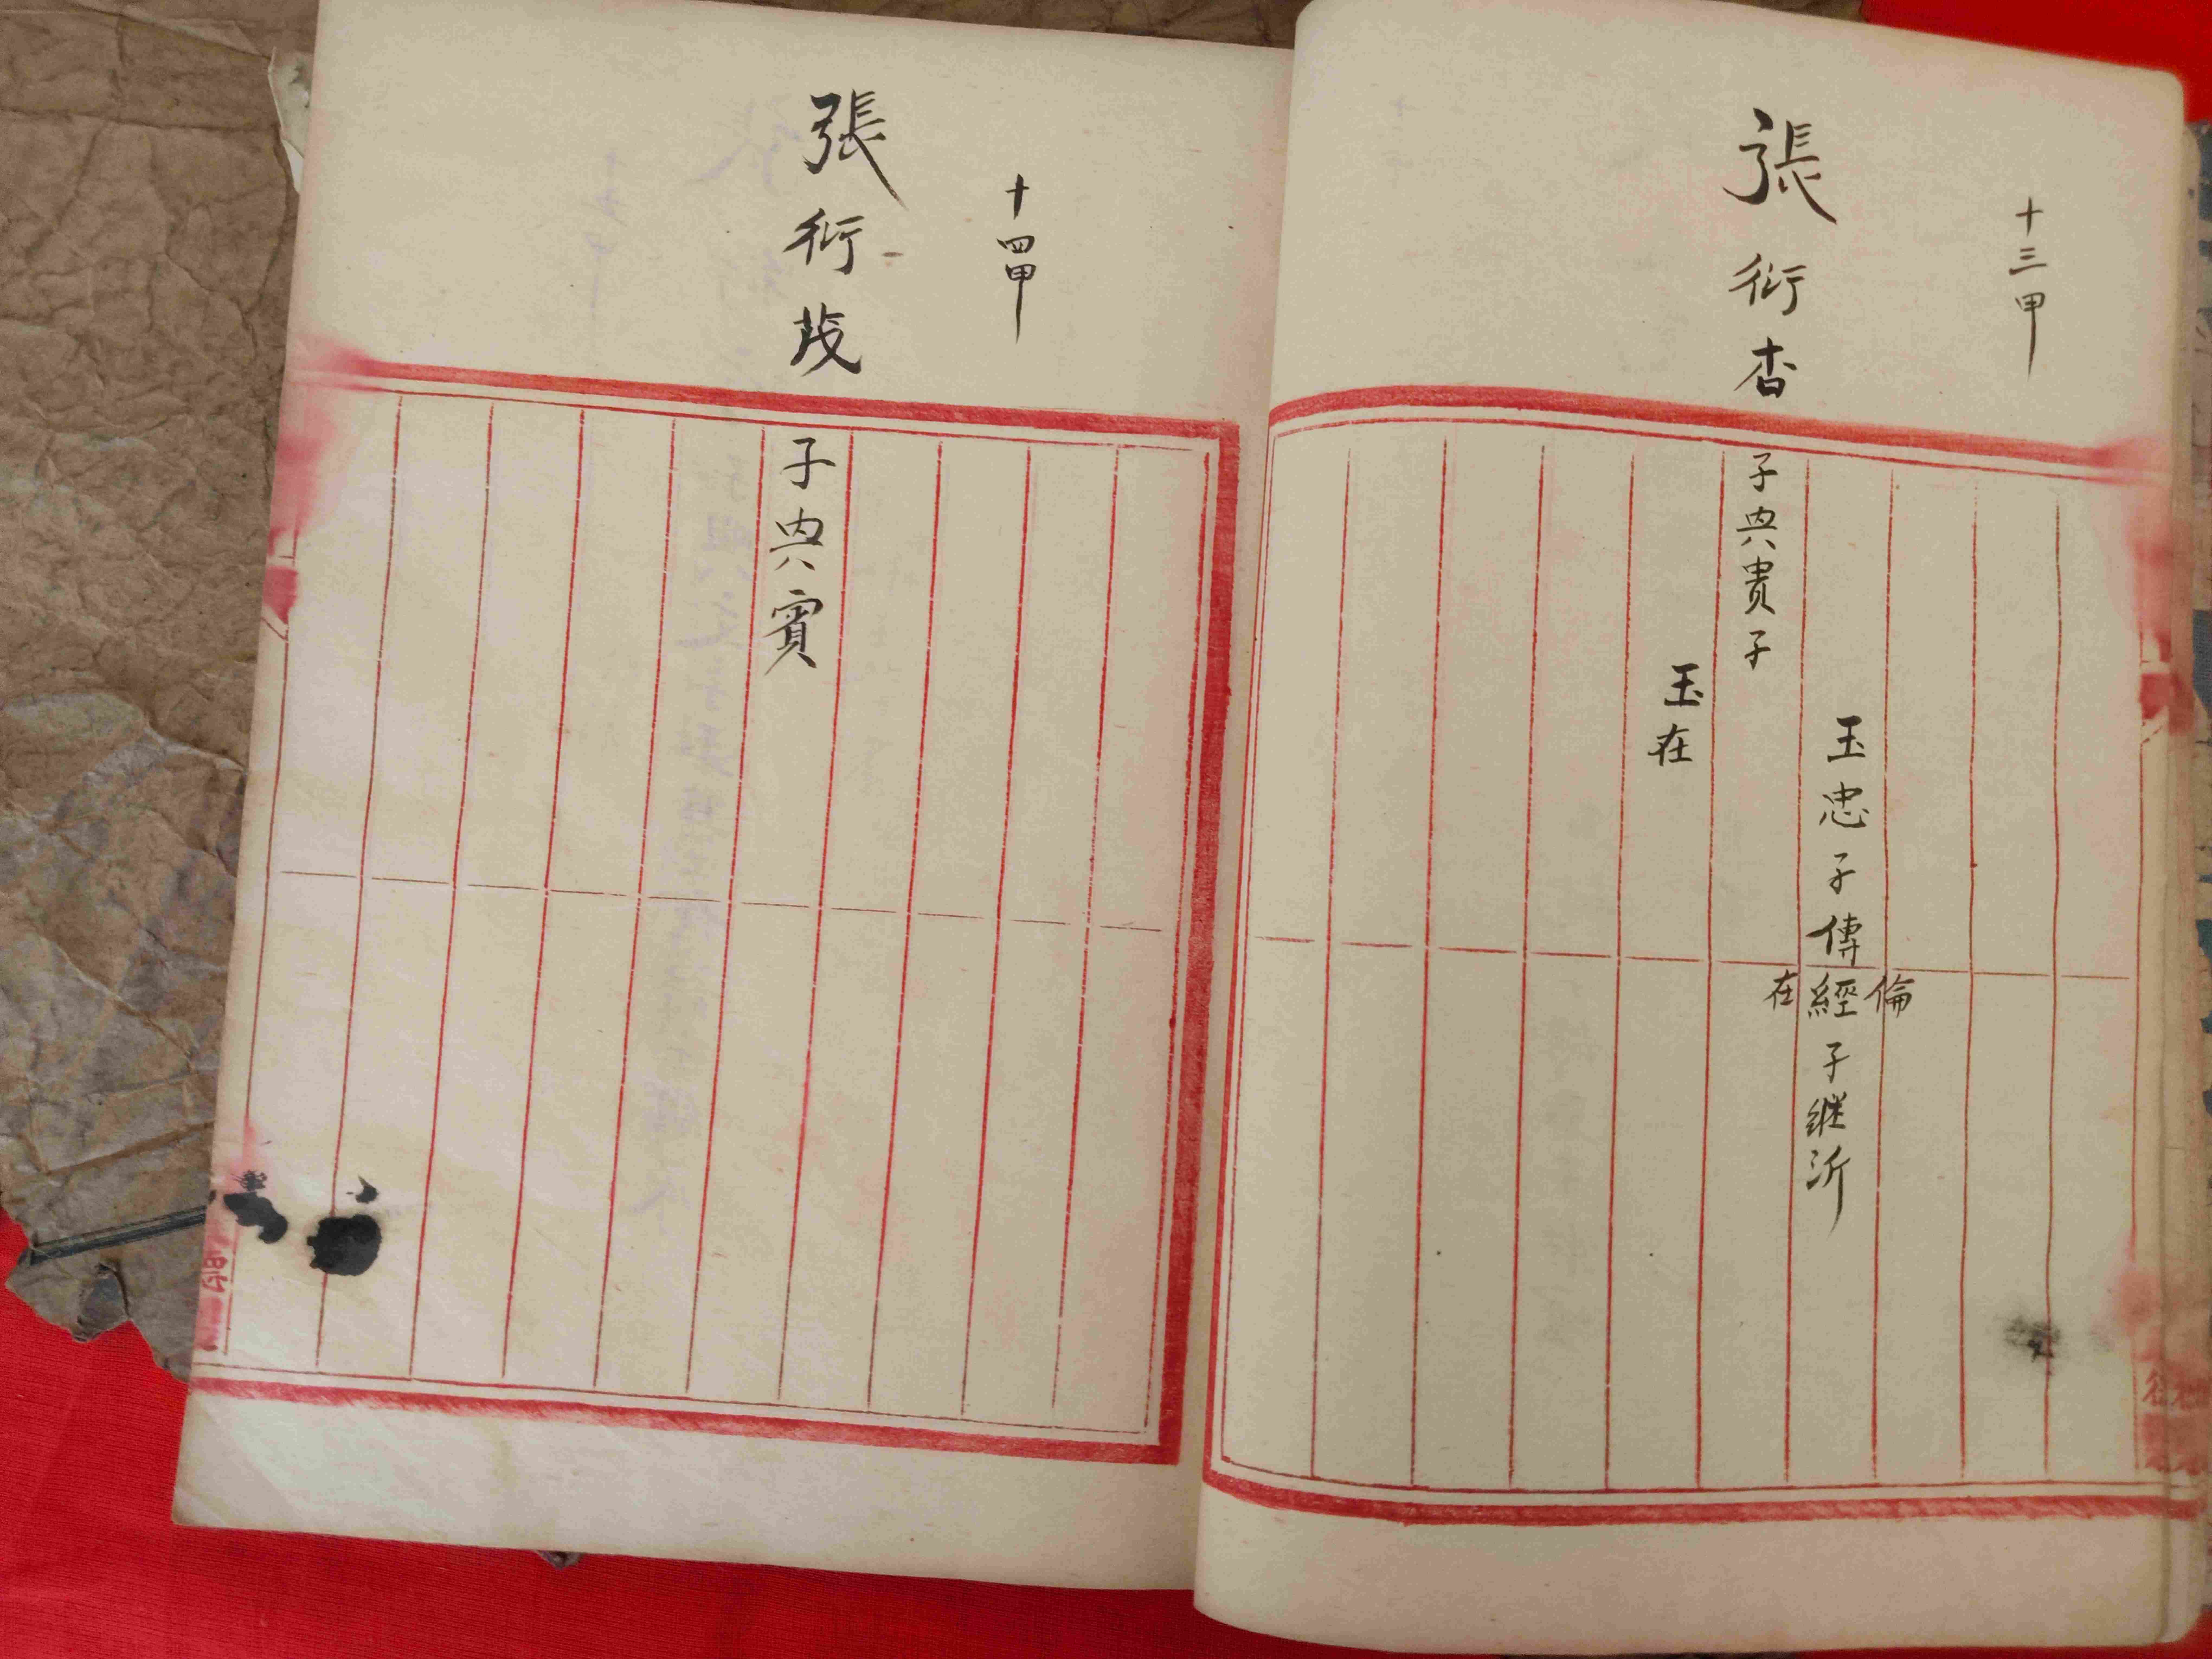 十三甲
張衍杏
子典貴子
玉忠子傳
倫
經子継沂
在
玉在
十四甲
張衍茂
子典賓